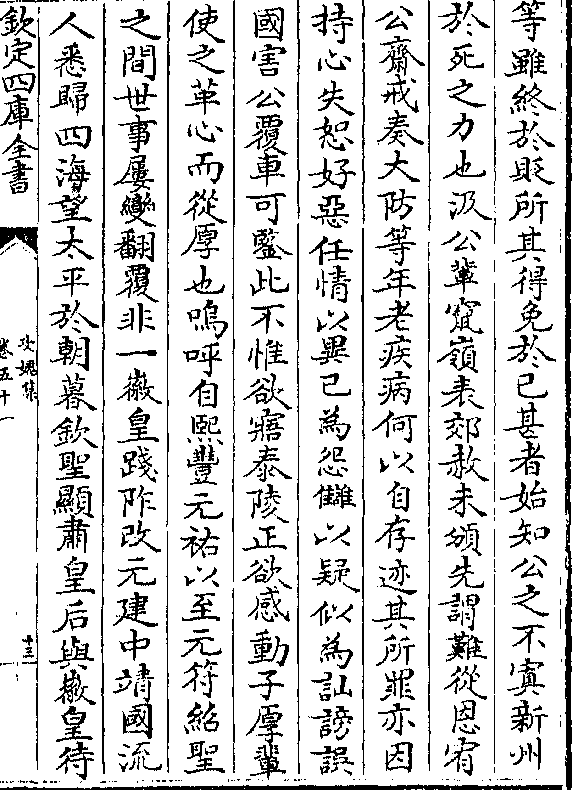 等雖終於貶所其得免於已甚者始知公之不寘新州
於死之力也汲公輩竄嶺表郊赦未頒先謂難從恩宥
公齋戒奏大防等年老疾病何以自存迹其所罪亦因
持心失恕好惡任情以異己為怨讎以疑似為訕謗誤
國害公覆車可鑒此不惟欲寤泰陵正欲感動子厚輩
使之革心而從厚也嗚呼自熙豐元祐以至元符紹聖
之間世事屢變翻覆非一徽皇踐阼改元建中靖國流
人悉歸四海望太平於朝暮欽聖顯肅皇后與徽皇待
欽定四庫全書
攻媿集
卷五十一
十三